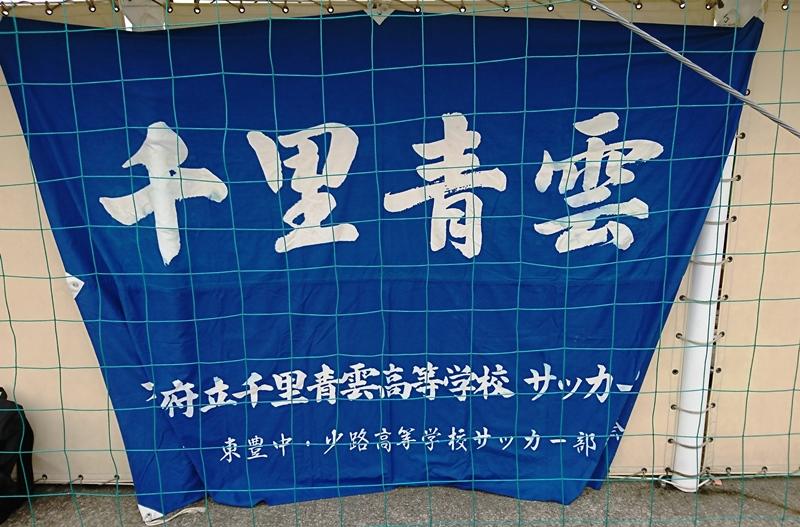 千里青雲
府立千里青雲高等学校 サッカー
東豊中・少路高等学校サッカー部